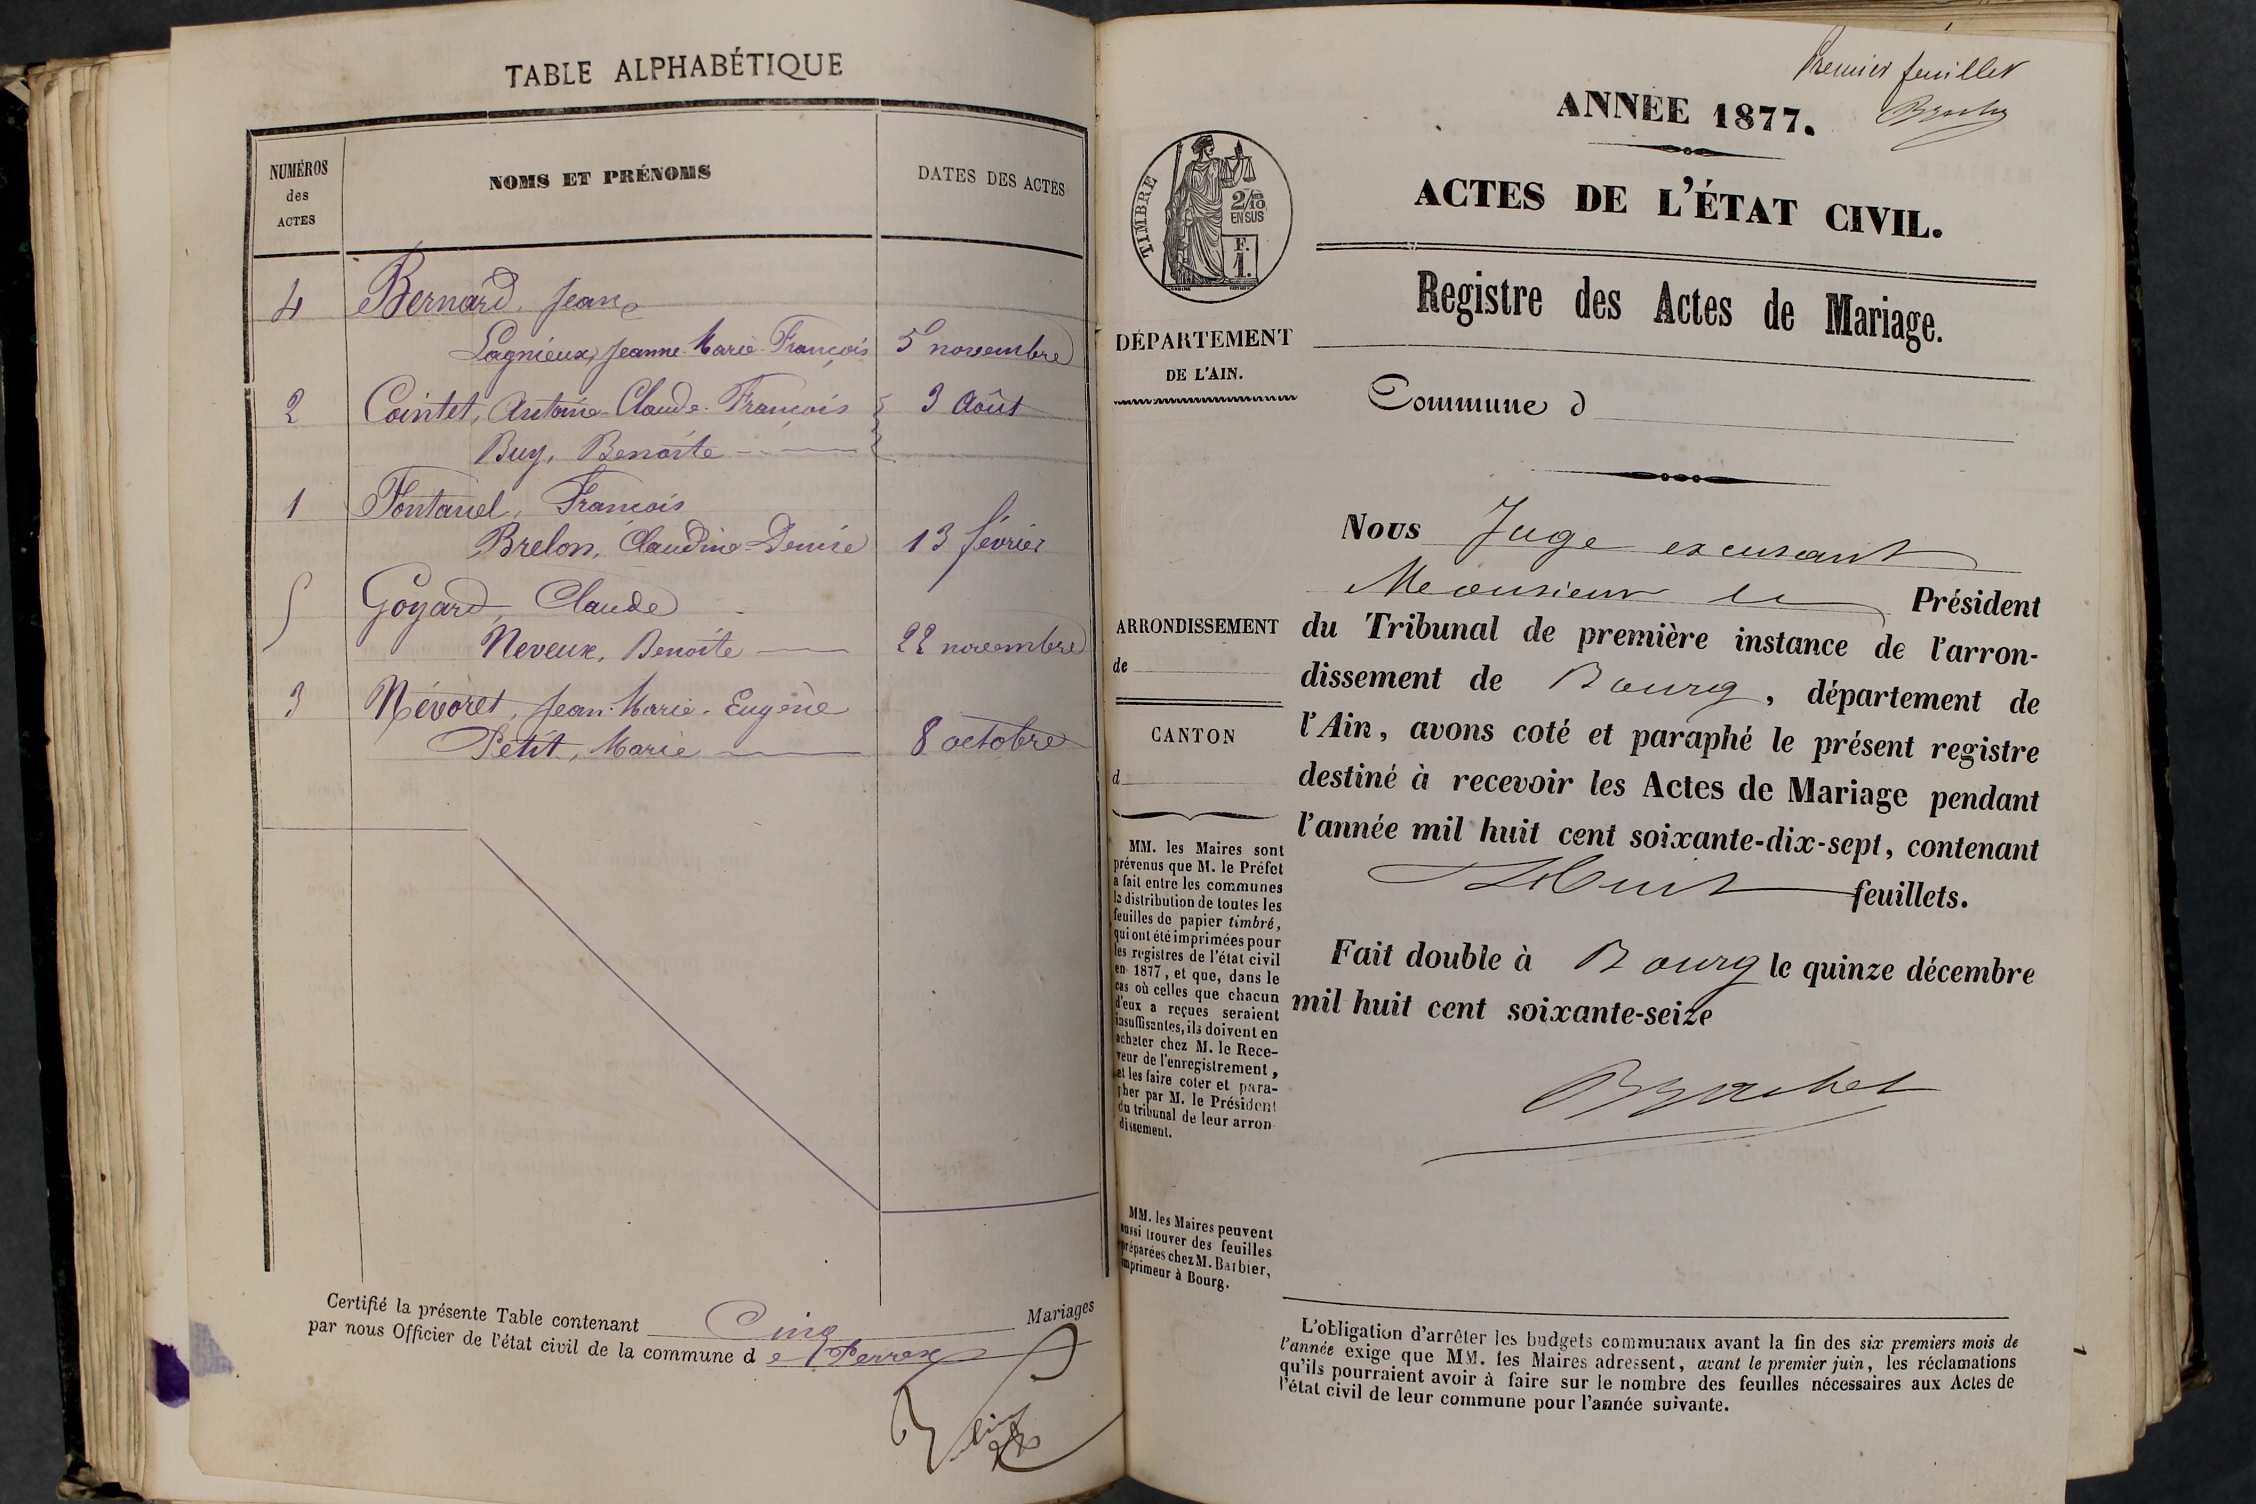 TABLE ALPHABÉTIQUE
NUMÉROS
des
ACTES
NOMS ET PRÉNOMS
DATES DES ACTES
4 Bernard, Jean
Lagnieux, Jeanne-Marie-François 5 novembre
2 Cointet, Antoine-Claude-François 3 Août
Buy, Benoîte
1 Fontanel, François
Brelon, Claudine-Denise 13 février
5 Goyard, Claude
Neveux, Benoîte 22 novembre
3 Névoret, Jean-Marie-Eugène
Petit, Marie 8 octobre
Certifié la présente Table contenant Cinq Mariages
par nous Officier de l'état civil de la commune d e Perrex
Premier feuillet
ANNÉE 1877.
ACTES DE L'ÉTAT CIVIL.
Registre des Actes de Mariage.
TIMBRE
2/10
EN SUS
F.
1.
DÉPARTEMENT
DE L'AIN.
Commune d
ARRONDISSEMENT
de
CANTON
d
MM. les Maires sont
prévenus que M. le Préfet
a fait entre les communes
la distribution de toutes les
feuilles de papier timbré,
qui ont été imprimées pour
les registres de l'état civil
en 1877, et que, dans le
cas où celles que chacun
d'eux a reçues seraient
insuffisantes, ils doivent en
acheter chez M. le Rece-
veur de l'enregistrement,
et les faire coter et para-
pher par M. le Président
du tribunal de leur arron-
dissement.
MM. les Maires peuvent
aussi trouver des feuilles
préparées chez M. Barbier,
imprimeur à Bourg.
Nous Juge excusant
Monsieur le Président
du Tribunal de première instance de l'arron-
dissement de Bourg, département de
l'Ain, avons coté et paraphé le présent registre
destiné à recevoir les Actes de Mariage pendant
l'année mil huit cent soixante-dix-sept, contenant
Huit feuillets.
Fait double à Bourg le quinze décembre
mil huit cent soixante-seize
L'obligation d'arrêter les budgets communaux avant la fin des six premiers mois de
l'année exige que MM. les Maires adressent, avant le premier juin, les réclamations
qu'ils pourraient avoir à faire sur le nombre des feuilles nécessaires aux Actes de
l'état civil de leur commune pour l'année suivante.
1